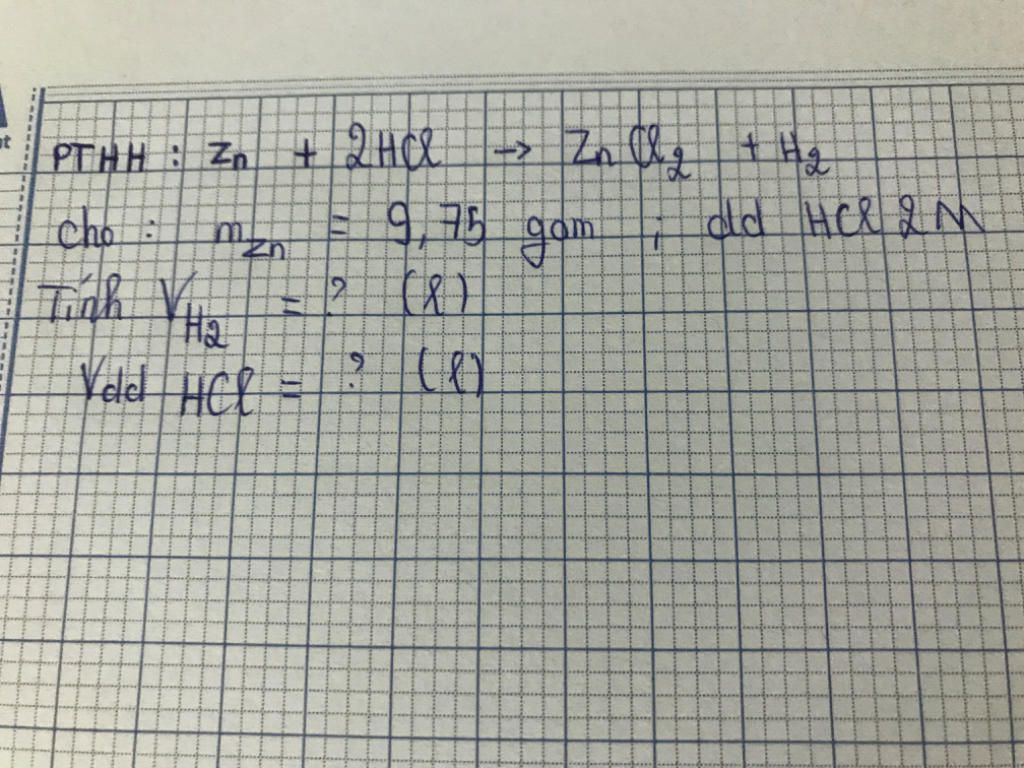 PTHH : Zn + 2HCl → ZnCl₂ + H₂
Cho : mZn = 9,75 gam ; dd HCl 2M
Tính VH₂ = ? (l)
Vdd HCl = ? (l)